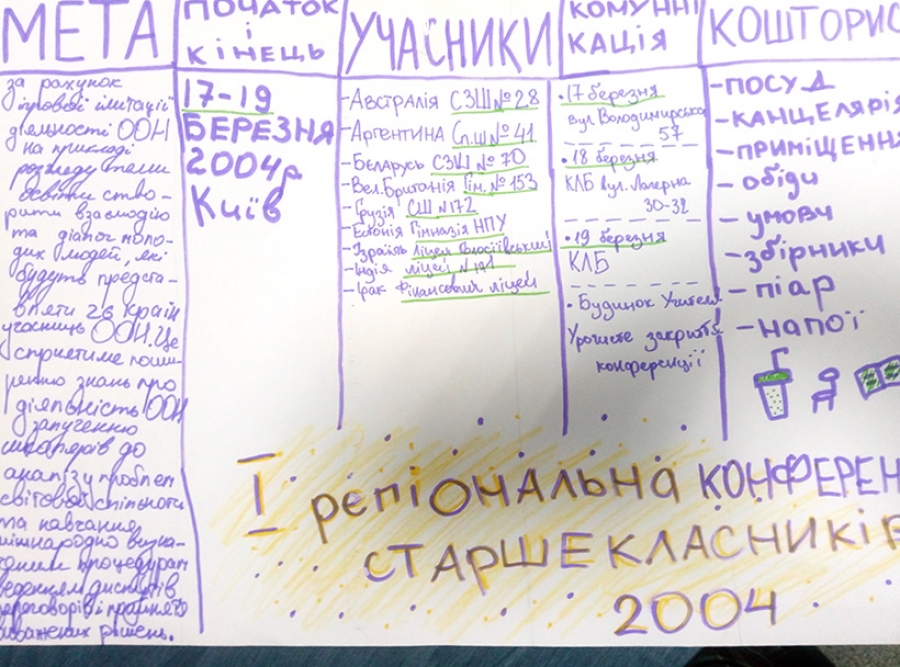 МЕТА
за рахунок
ігрової імітації
діяльності ООН
на прикладі
розгляду теми
освіти ство-
рити взаємодію
та діалог моло-
дих людей, які
будуть предста-
вляти 26 країн
учасниць ООН. Це
сприятиме поши-
ренню знань про
діяльність ООН
залученню
школярів до
аналізу проблем
світової спільноти
та навчання
міжнародно визна-
процедурам
ведення диспутів
переговорів і прийняття
рішень.
ПОЧАТОК
і
КІНЕЦЬ
17-19
БЕРЕЗНЯ
2004р
Київ
УЧАСНИКИ
-Австралія СЗШ №28
-Аргентина Сп.Ш №41
-Беларусь СЗШ №70
-Вел.Британія Гім. №153
-Грузія СШ №172
-Естонія Гімназія НПУ
-Ізраїль Ліцей Голосіївський
-Індія ліцей №171
-Ірак Фінансовий ліцей
КОМУНІ
КАЦІЯ
•17 березня
вул Володимирська
57
•18 березня
КЛБ вул. Липерна
30-32
•19 березня
КЛБ
• Будинок Учителя
Урочисте закриття
конференції
КОШТОРИС
-ПОСУД
-КАНЦЕЛЯРІЯ
-ПРИМІЩЕННЯ
-обіди
-умови
-збірники
-піар
-напої
I регіональна КОНФЕРЕН
СТАРШЕКЛАСНИКІВ
2004